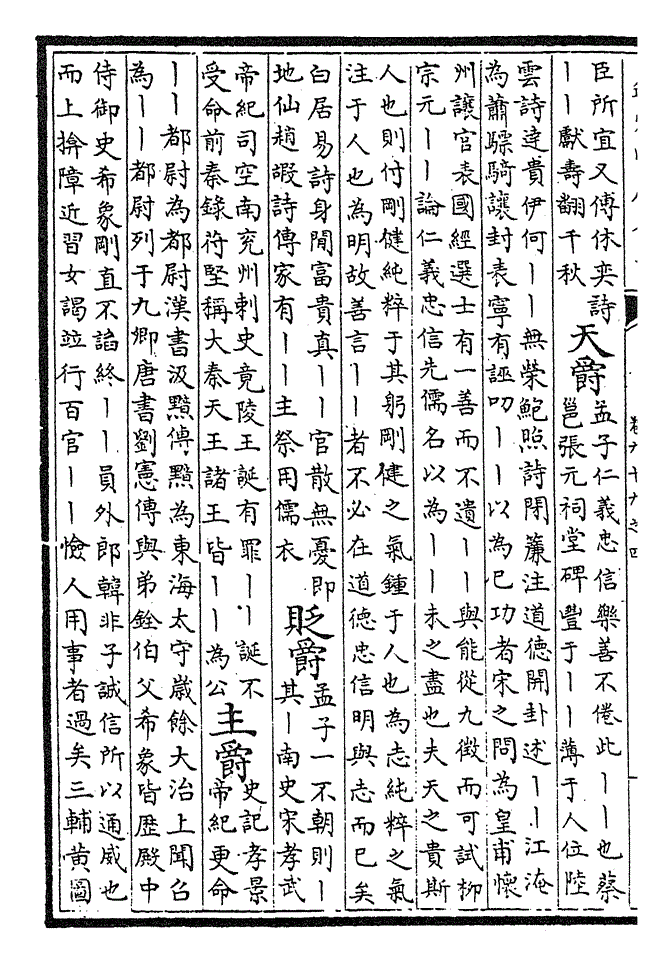 臣所宜又傅休奕詩
丨丨獻壽翻千秋
天爵
孟子仁義忠信樂善不倦此丨丨也蔡
邕張元祠堂碑豐于丨丨薄于人位陸
雲詩達貴伊何丨丨無榮鮑照詩閉簾注道德開卦述丨丨江淹
為蕭驃騎讓封表寧有誣叨丨丨以為已功者宋之問為皇甫懷
州讓官表國經選士有一善而不遺丨丨與能從九徴而可試柳
宗元丨丨論仁義忠信先儒名以為丨丨未之盡也夫天之貴斯
人也則付剛健純粹于其躬剛健之氣鍾于人也為志純粹之氣
注于人也為明故善言丨丨者不必在道德忠信明與志而已矣
白居易詩身閒富貴真丨丨官散無憂即
地仙趙嘏詩傳家有丨丨主祭用儒衣
貶爵
孟子一不朝則丨
其丨南史宋孝武
帝紀司空南兖州刺史竟陵王誕有罪丨丨誕不
受命前秦錄苻堅稱大秦天王諸王皆丨丨為公
主爵
史記孝景
帝紀更命
丨丨都尉為都尉漢書汲黯傳黯為東海太守歲餘大治上聞召
為丨丨都尉列于九卿唐書劉憲傳與弟銓伯父希象皆歴殿中
侍御史希象剛直不諂終丨丨員外郎韓非子誠信所以通威也
而上揜障近習女謁並行百官丨丨憸人用事者過矣三輔黄圖